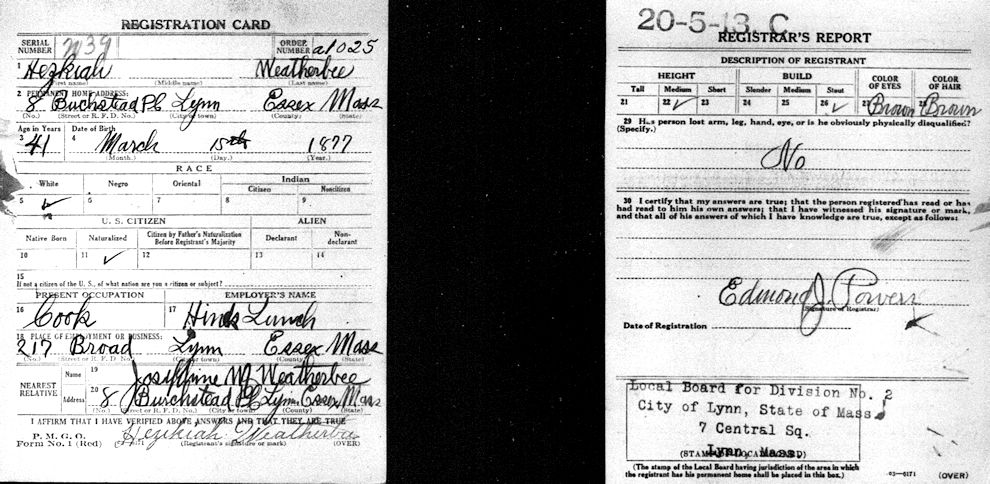 REGISTRATION CARD
SERIAL NUMBER 2239 ORDER NUMBER a1025
1 Hezkiah Weatherbee
(First name) (Middle name) (Last name)
2 PERMANENT HOME ADDRESS:
8 Buchstead Pl Lynn Essex Mass
(No.) (Street or R. F. D. No.) (City or town) (County) (State)
Age in Years Date of Birth
3 41 4 March 15th 1877
(Month.) (Day.) (Year.)
RACE
White Negro Oriental Indian
Citizen Noncitizen
5 ✓ 6 7 8 9
U. S. CITIZEN ALIEN
Native Born Naturalized Citizen by Father's Naturalization Before Registrant's Majority Declarant Non-declarant
10 11 ✓ 12 13 14
15
If not a citizen of the U. S., of what nation are you a citizen or subject?
PRESENT OCCUPATION EMPLOYER'S NAME
16 Cook 17 Hinds Lunch
18 PLACE OF EMPLOYMENT OR BUSINESS:
217 Broad Lynn Essex Mass
(No.) (Street or R. F. D. No.) (City or town) (County) (State)
NEAREST RELATIVE Name 19 Josephine M Weatherbee
Address 20 8 Burchstead Pl Lynn Essex Mass
(No.) (Street or R. F. D. No.) (City or town) (County) (State)
I AFFIRM THAT I HAVE VERIFIED ABOVE ANSWERS AND THAT THEY ARE TRUE
P. M. G. O.
Form No. 1 (Red) Hezikiah Weatherbee
(Registrant's signature or mark) (OVER)
20-5-13 C
REGISTRAR'S REPORT
DESCRIPTION OF REGISTRANT
HEIGHT BUILD COLOR OF EYES COLOR OF HAIR
Tall Medium Short Slender Medium Stout
21 22 ✓ 23 24 25 26 ✓ 27 Brown 28 Brown
29 Has person lost arm, leg, hand, eye, or is he obviously physically disqualified?
(Specify.)
No
30 I certify that my answers are true; that the person registered has read or has
had read to him his own answers; that I have witnessed his signature or mark,
and that all of his answers of which I have knowledge are true, except as follows:
Edmond J. Powers
(Signature of Registrar)
Date of Registration
Local Board for Division No. 2
City of Lynn, State of Mass.
7 Central Sq.
Lynn, Mass.
(STAMP OF LOCAL BOARD)
(The stamp of the Local Board having jurisdiction of the area in which
the registrant has his permanent home shall be placed in this box.)
03—6171 (OVER)